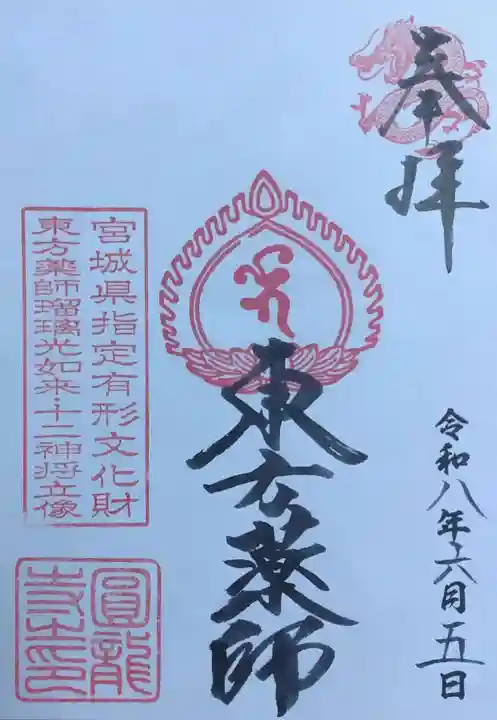 奉拝
令和八年六月五日
東方薬師
宮城県指定有形文化財
東方薬師瑠璃光如来・十二神将立像
圓龍
寺之印